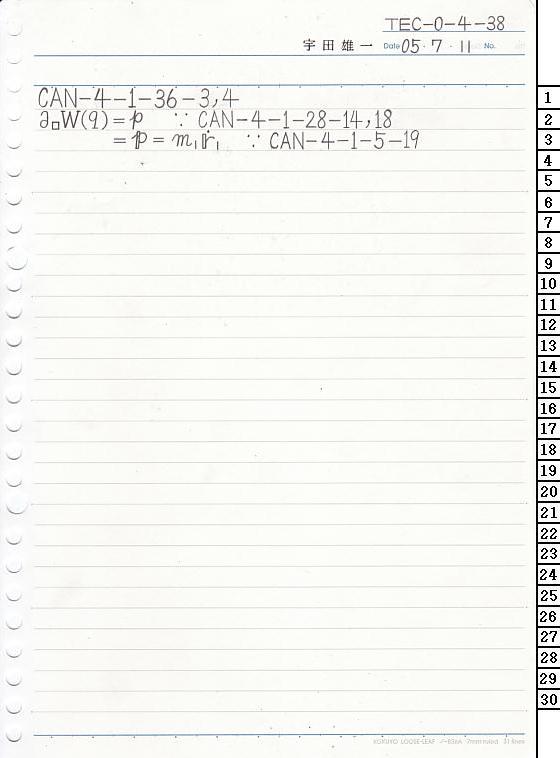 TEC-0-4-38
宇田雄一 Date 05・7・11 No.
CAN-4-1-36-3,4
∂□W(q)=p ∵ CAN-4-1-28-14,18
=𝕡=m₁𝕣̇₁ ∵ CAN-4-1-5-19
1
2
3
4
5
6
7
8
9
10
11
12
13
14
15
16
17
18
19
20
21
22
23
24
25
26
27
28
29
30
KOKUYO LOOSE-LEAF ノ-836A 7mm ruled 31 lines